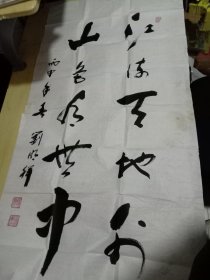 江流天地外
山色有无中
丙申年春 刘